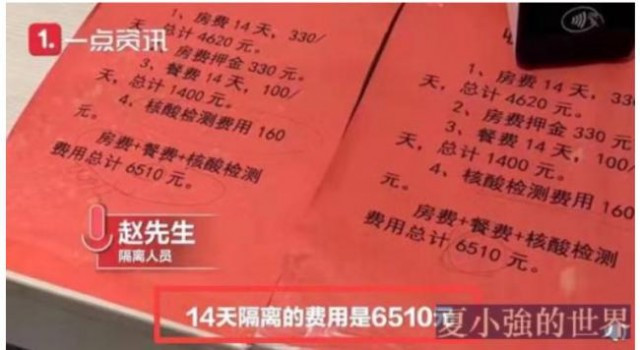 1.一点资讯
1、房费14天，330/
天，总计4620元。
房费押金330元。
3、餐费14天，100/
天，总计1400元。
4、核酸检测费用160
元。
房费+餐费+核酸检测
费用总计6510元。
1、房费14天，330/
天，总计4620元。
2、房费押金330元。
3、餐费14天，100/
天，总计1400元。
4、核酸检测费用160
元。
房费+餐费+核酸检测
费用总计6510元。
赵先生
隔离人员
14天隔离的费用是6510元
夏小強的世界